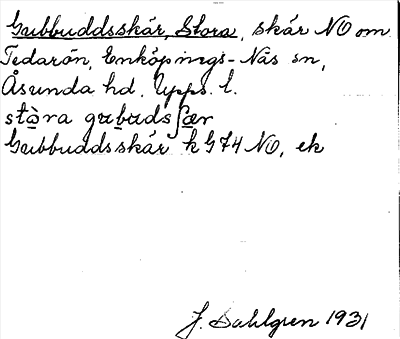 Gubbuddsskär, Stora, skär NO om
Tedarön, Enköpings-Näs sn,
Åsunda hd. Upps. l.
stòra gubudsʃær
Gubbuddsskär k G74 NO, ek
J. Dahlgren 1931